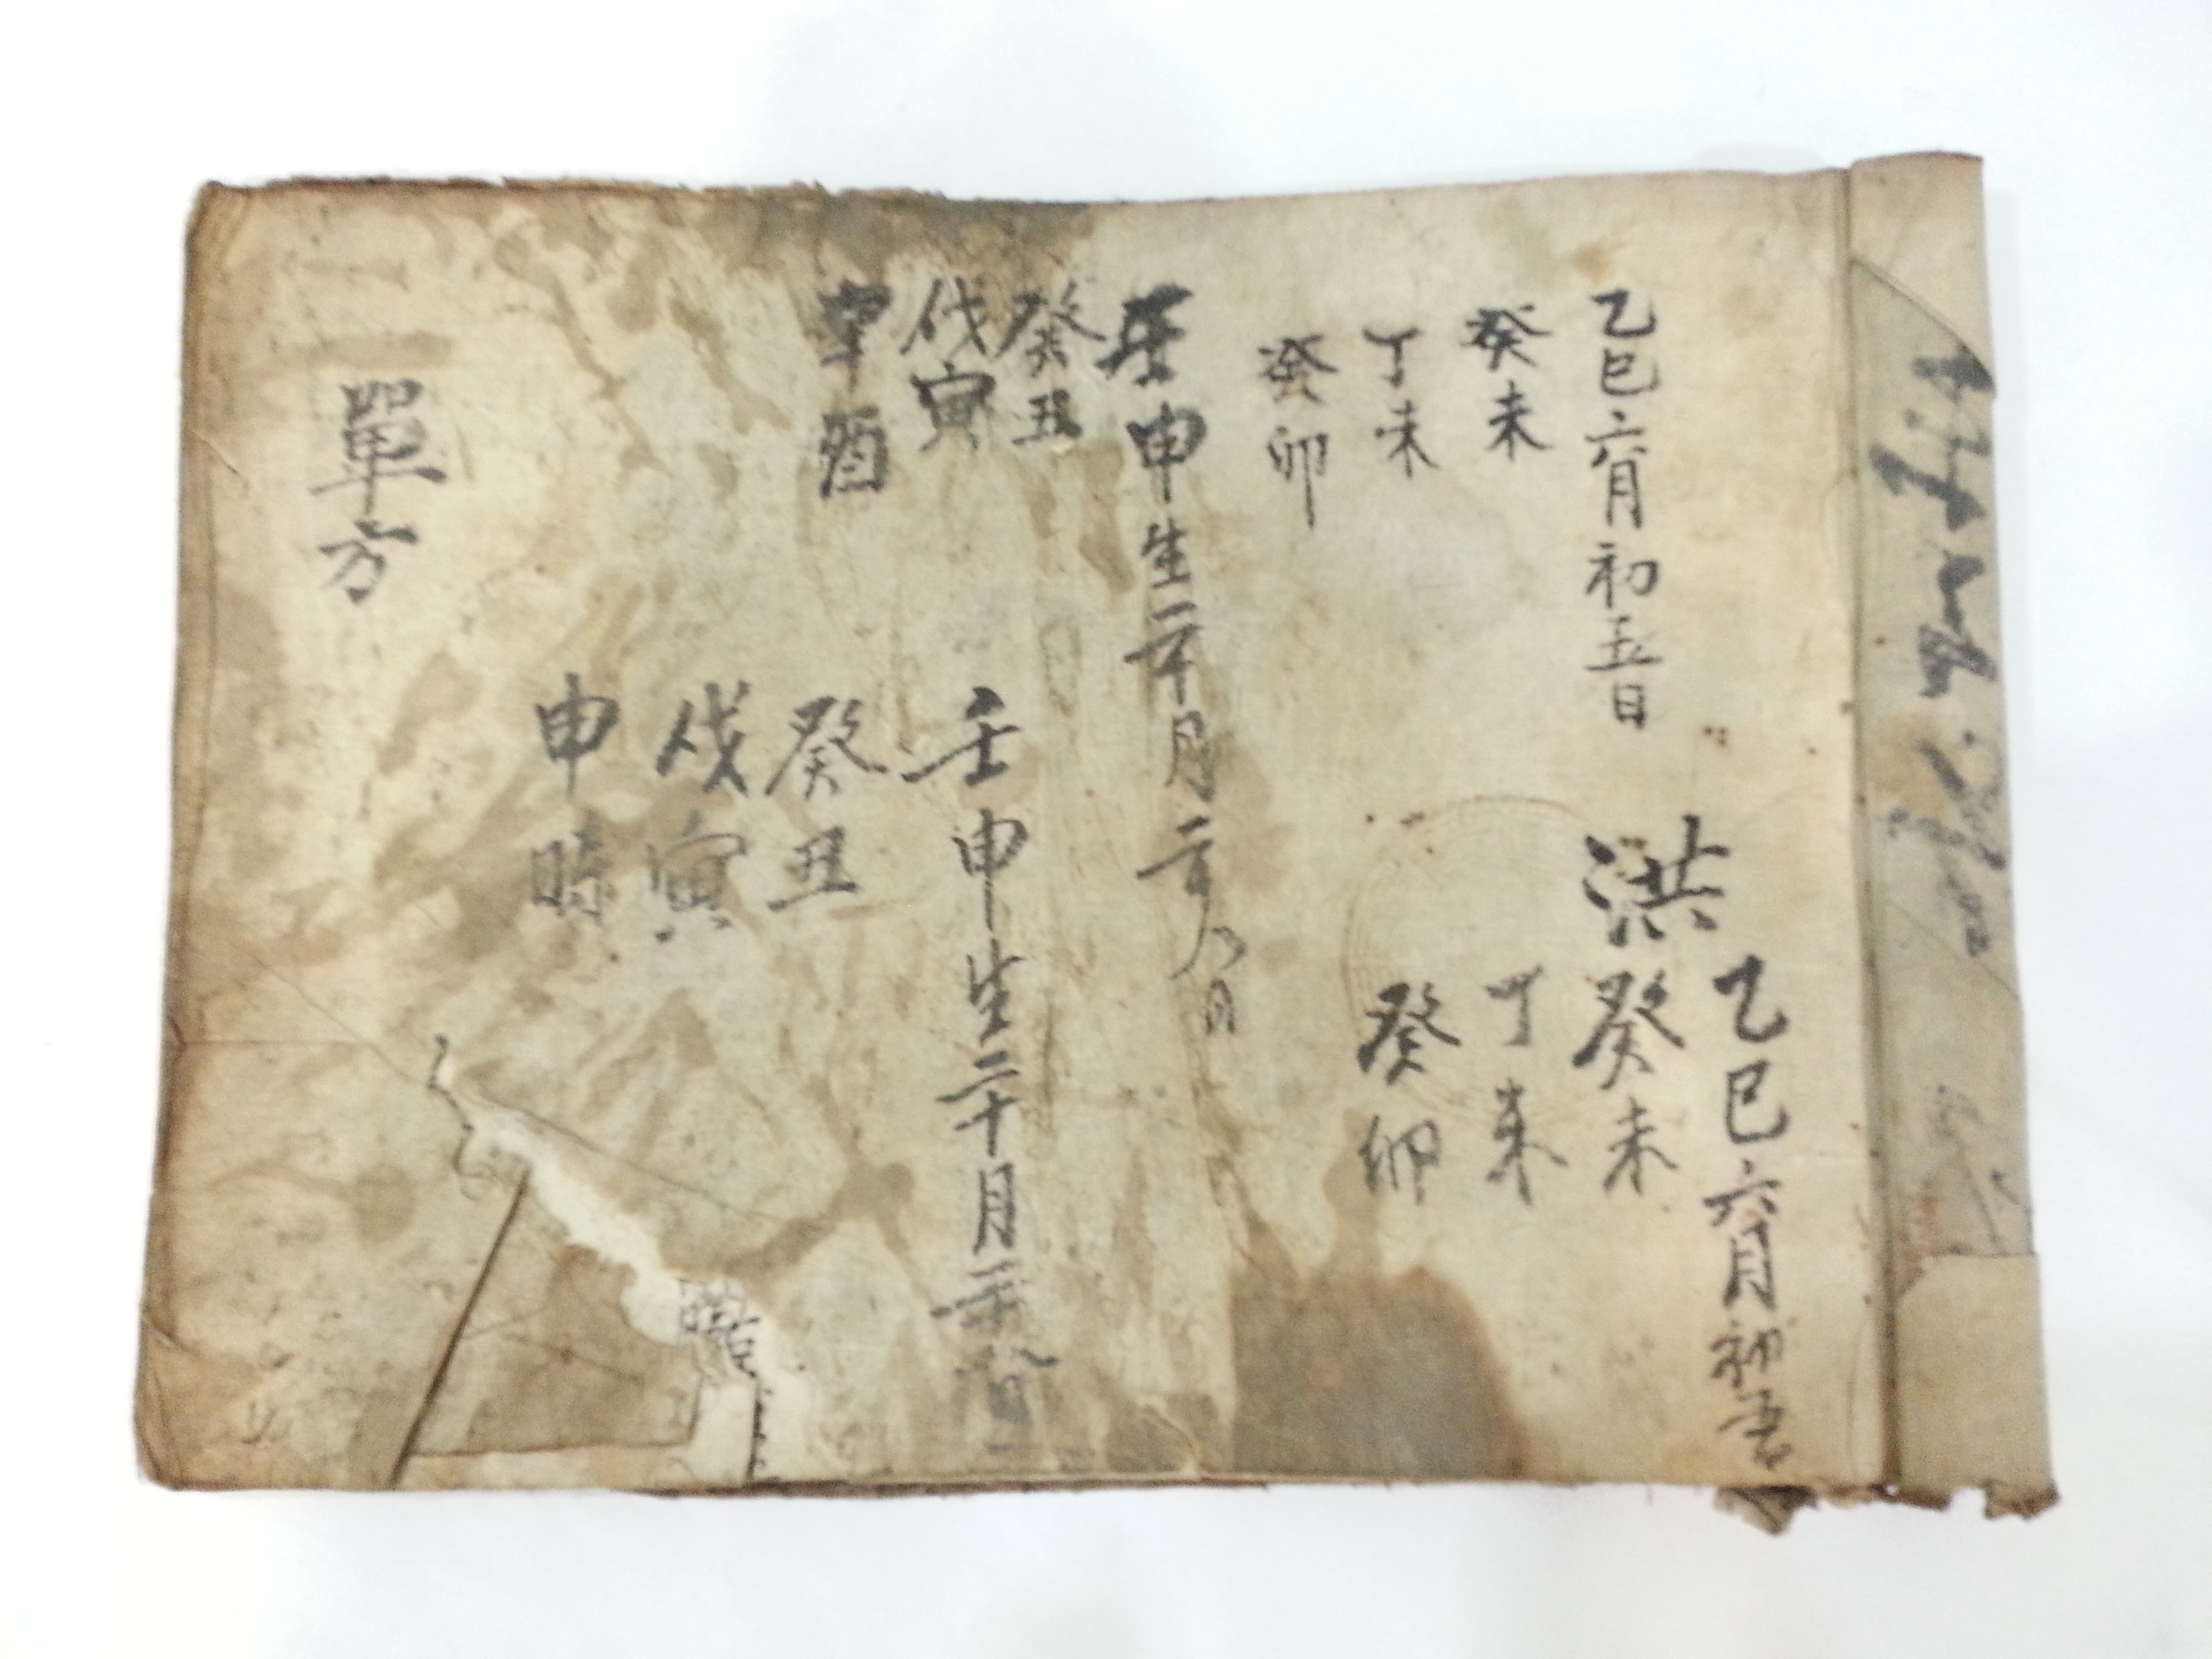 乙巳六月初五日
癸未
丁未
癸卯
壬申生二十月二十八日
癸丑
戊寅
酉
洪
乙巳六月初五日
癸未
丁未
癸卯
壬申生二十月二十八日
癸丑
戊寅
申時
單方